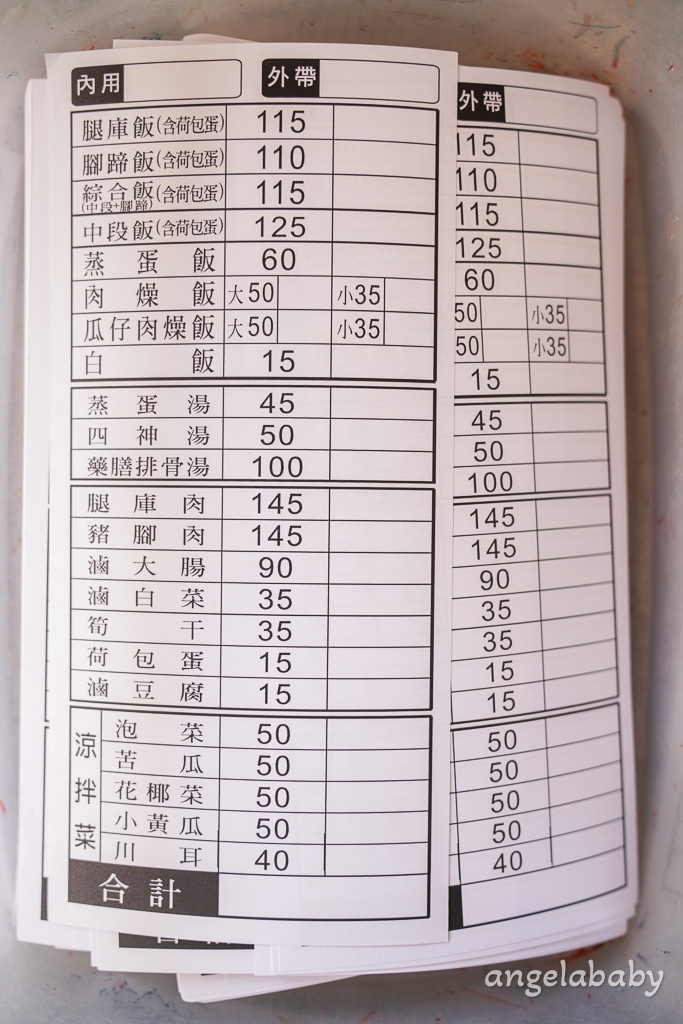 內用 外帶
腿庫飯(含荷包蛋) 115
腳蹄飯(含荷包蛋) 110
綜合飯(含荷包蛋) 115
(中段+腳蹄)
中段飯(含荷包蛋) 125
蒸蛋飯 60
肉燥飯 大50 小35
瓜仔肉燥飯 大50 小35
白飯 15
蒸蛋湯 45
四神湯 50
藥膳排骨湯 100
腿庫肉 145
豬腳肉 145
滷大腸 90
滷白菜 35
筍干 35
荷包蛋 15
滷豆腐 15
涼拌菜
泡菜 50
苦瓜 50
花椰菜 50
小黃瓜 50
川耳 40
合計
外帶
115
110
115
125
60
50 小35
50 小35
15
45
50
100
145
145
90
35
35
15
15
50
50
50
50
40
angelababy